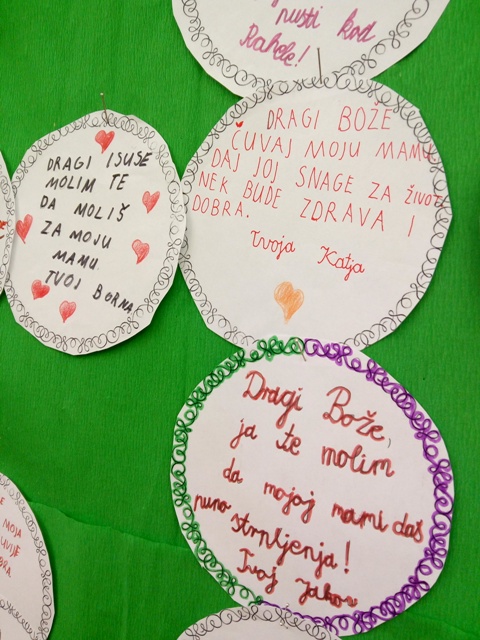 pusti kod
Rahele!
DRAGI ISUSE
MOLIM TE
DA MOLIŠ
ZA MOJU
MAMU.
TVOJ BORNA
DRAGI BOŽE
ČUVAJ MOJU MAMU
DAJ JOJ SNAGE ZA ŽIVOT
NEK BUDE ZDRAVA I
DOBRA.
Tvoja Katja
Dragi Bože,
ja te molim
da mojoj mami daš
puno strpljenja!
Tvoj Jakov
MOJA